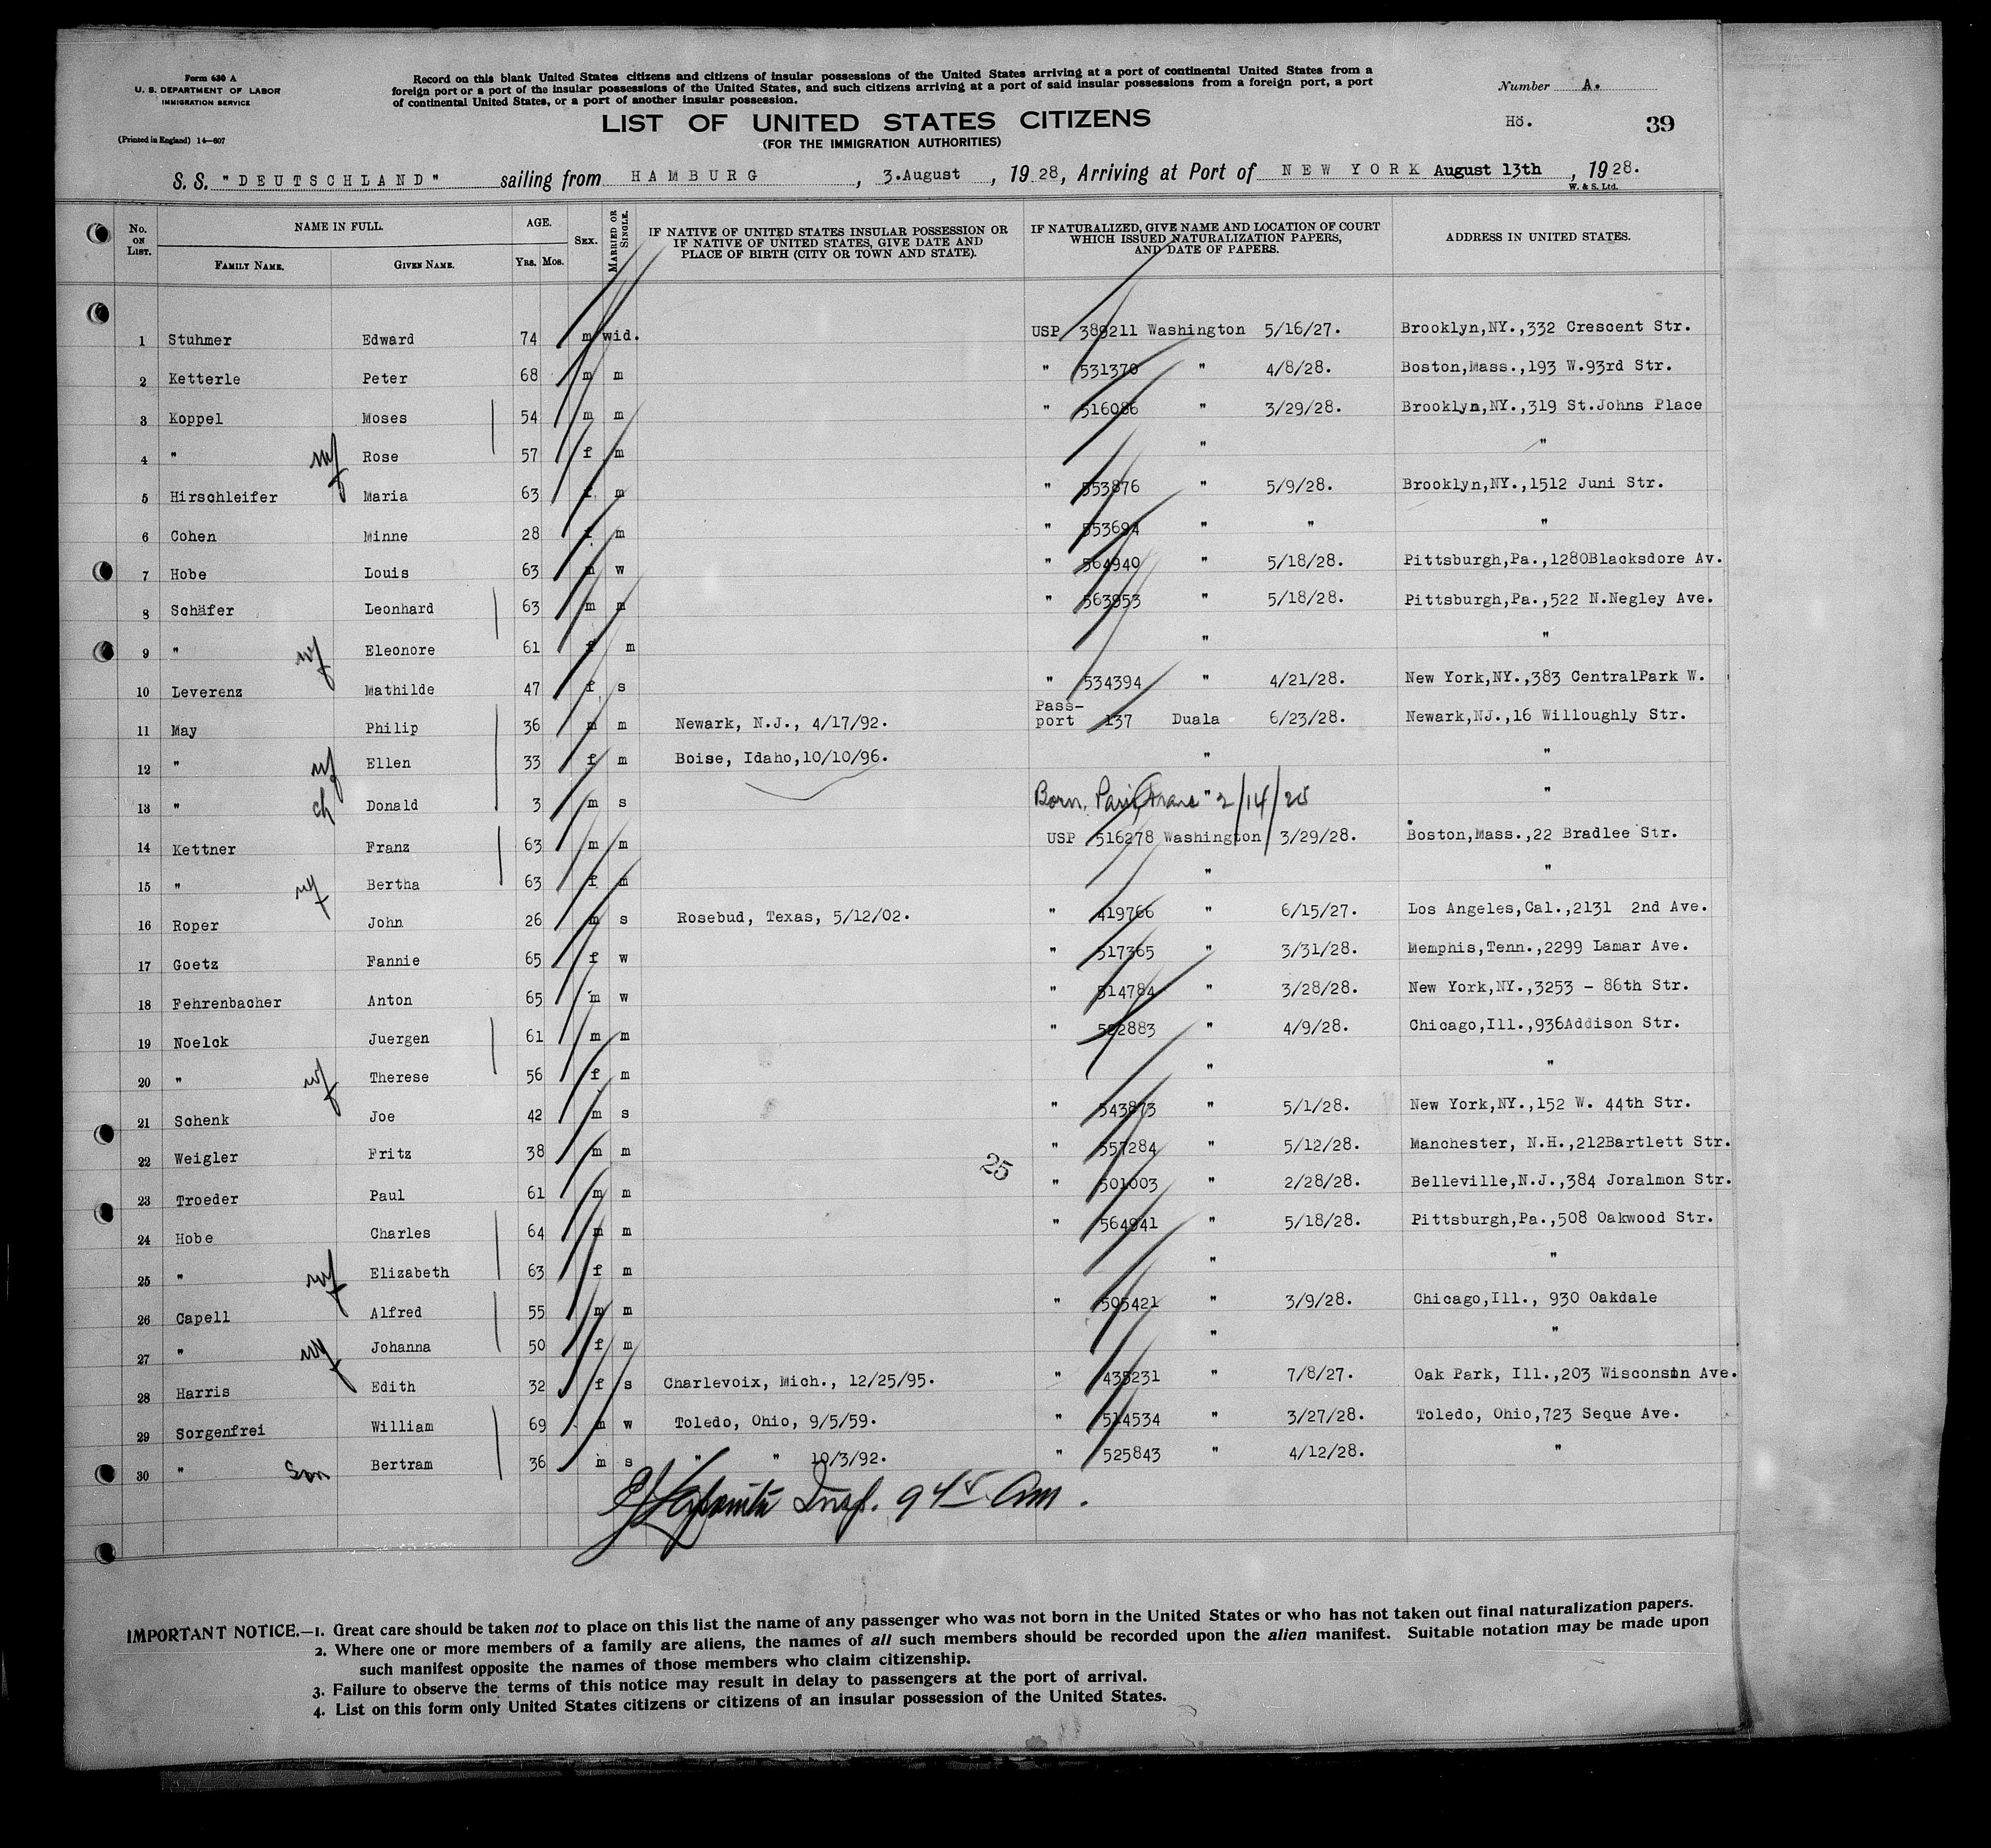 Form 630 A
U. S. DEPARTMENT OF LABOR
IMMIGRATION SERVICE
(Printed in England) 14—607
Record on this blank United States citizens and citizens of insular possessions of the United States arriving at a port of continental United States from a
foreign port or a port of the insular possessions of the United States, and such citizens arriving at a port of said insular possessions from a foreign port, a port
of continental United States, or a port of another insular possession.
Number A.
LIST OF UNITED STATES CITIZENS
Hö.
39
(FOR THE IMMIGRATION AUTHORITIES)
S. S. "DEUTSCHLAND" sailing from HAMBURG, 3.August, 1928, Arriving at Port of NEW YORK August 13th, 1928.
W. & S. Ltd.
No. ON LIST. NAME IN FULL. AGE. SEX. MARRIED OR SINGLE. IF NATIVE OF UNITED STATES INSULAR POSSESSION OR IF NATIVE OF UNITED STATES, GIVE DATE AND PLACE OF BIRTH (CITY OR TOWN AND STATE). IF NATURALIZED, GIVE NAME AND LOCATION OF COURT WHICH ISSUED NATURALIZATION PAPERS, AND DATE OF PAPERS. ADDRESS IN UNITED STATES.
FAMILY NAME. GIVEN NAME. YRS. MOS.
1 Stuhmer Edward 74 m wid. USP 389211 Washington 5/16/27. Brooklyn,NY.,332 Crescent Str.
2 Ketterle Peter 68 m m " 531370 " 4/8/28. Boston,Mass.,193 W.93rd Str.
3 Koppel Moses 54 m m " 516086 " 3/29/28. Brooklyn,NY.,319 St.Johns Place
4 " wf Rose 57 f m " "
5 Hirschleifer Maria 63 f m " 553876 " 5/9/28. Brooklyn,NY.,1512 Juni Str.
6 Cohen Minne 28 f m " 553694 " " "
7 Hobe Louis 63 m w " 564940 " 5/18/28. Pittsburgh,Pa.,1280Blacksdore Av.
8 Schäfer Leonhard 63 m m " 563953 " 5/18/28. Pittsburgh,Pa.,522 N.Negley Ave.
9 " wf Eleonore 61 f m " "
10 Leverenz Mathilde 47 f s " 534394 " 4/21/28. New York,NY.,383 CentralPark W.
11 May Philip 36 m m Newark, N.J., 4/17/92. Pass-port 137 Duala 6/23/28. Newark,NJ.,16 Willoughly Str.
12 " wf Ellen 33 f m Boise, Idaho,10/10/96. " "
13 " ch Donald 3 m s Born. Paris, Franc " 2/14/25 "
14 Kettner Franz 63 m m USP 516278 Washington 3/29/28. Boston,Mass.,22 Bradlee Str.
15 " wf Bertha 63 f m " "
16 Roper John 26 m s Rosebud, Texas, 5/12/02. " 419766 " 6/15/27. Los Angeles,Cal.,2131 2nd Ave.
17 Goetz Fannie 65 f w " 517365 " 3/31/28. Memphis,Tenn.,2299 Lamar Ave.
18 Fehrenbacher Anton 65 m w " 514784 " 3/28/28. New York,NY.,3253 - 86th Str.
19 Noelck Juergen 61 m m " 522883 " 4/9/28. Chicago,Ill.,936Addison Str.
20 " wf Therese 56 f m " "
21 Schenk Joe 42 m s " 543873 " 5/1/28. New York,NY.,152 W. 44th Str.
22 Weigler Fritz 38 m m " 557284 " 5/12/28. Manchester, N.H.,212Bartlett Str.
25
23 Troeder Paul 61 m m " 501003 " 2/28/28. Belleville,N.J.,384 Joralmon Str.
24 Hobe Charles 64 m m " 564941 " 5/18/28. Pittsburgh,Pa.,508 Oakwood Str.
25 " wf Elizabeth 63 f m " "
26 Capell Alfred 55 m m " 505421 " 3/9/28. Chicago,Ill., 930 Oakdale
27 " wf Johanna 50 f m " "
28 Harris Edith 32 f s Charlevoix, Mich., 12/25/95. " 435231 " 7/8/27. Oak Park, Ill.,203 Wisconsin Ave.
29 Sorgenfrei William 69 m w Toledo, Ohio, 9/5/59. " 514534 " 3/27/28. Toledo, Ohio,723 Seque Ave.
30 " Son Bertram 36 m s " " 10/3/92. " 525843 " 4/12/28. "
Insp. 9 45 Am.
IMPORTANT NOTICE.—1. Great care should be taken not to place on this list the name of any passenger who was not born in the United States or who has not taken out final naturalization papers.
2. Where one or more members of a family are aliens, the names of all such members should be recorded upon the alien manifest. Suitable notation may be made upon
such manifest opposite the names of those members who claim citizenship.
3. Failure to observe the terms of this notice may result in delay to passengers at the port of arrival.
4. List on this form only United States citizens or citizens of an insular possession of the United States.